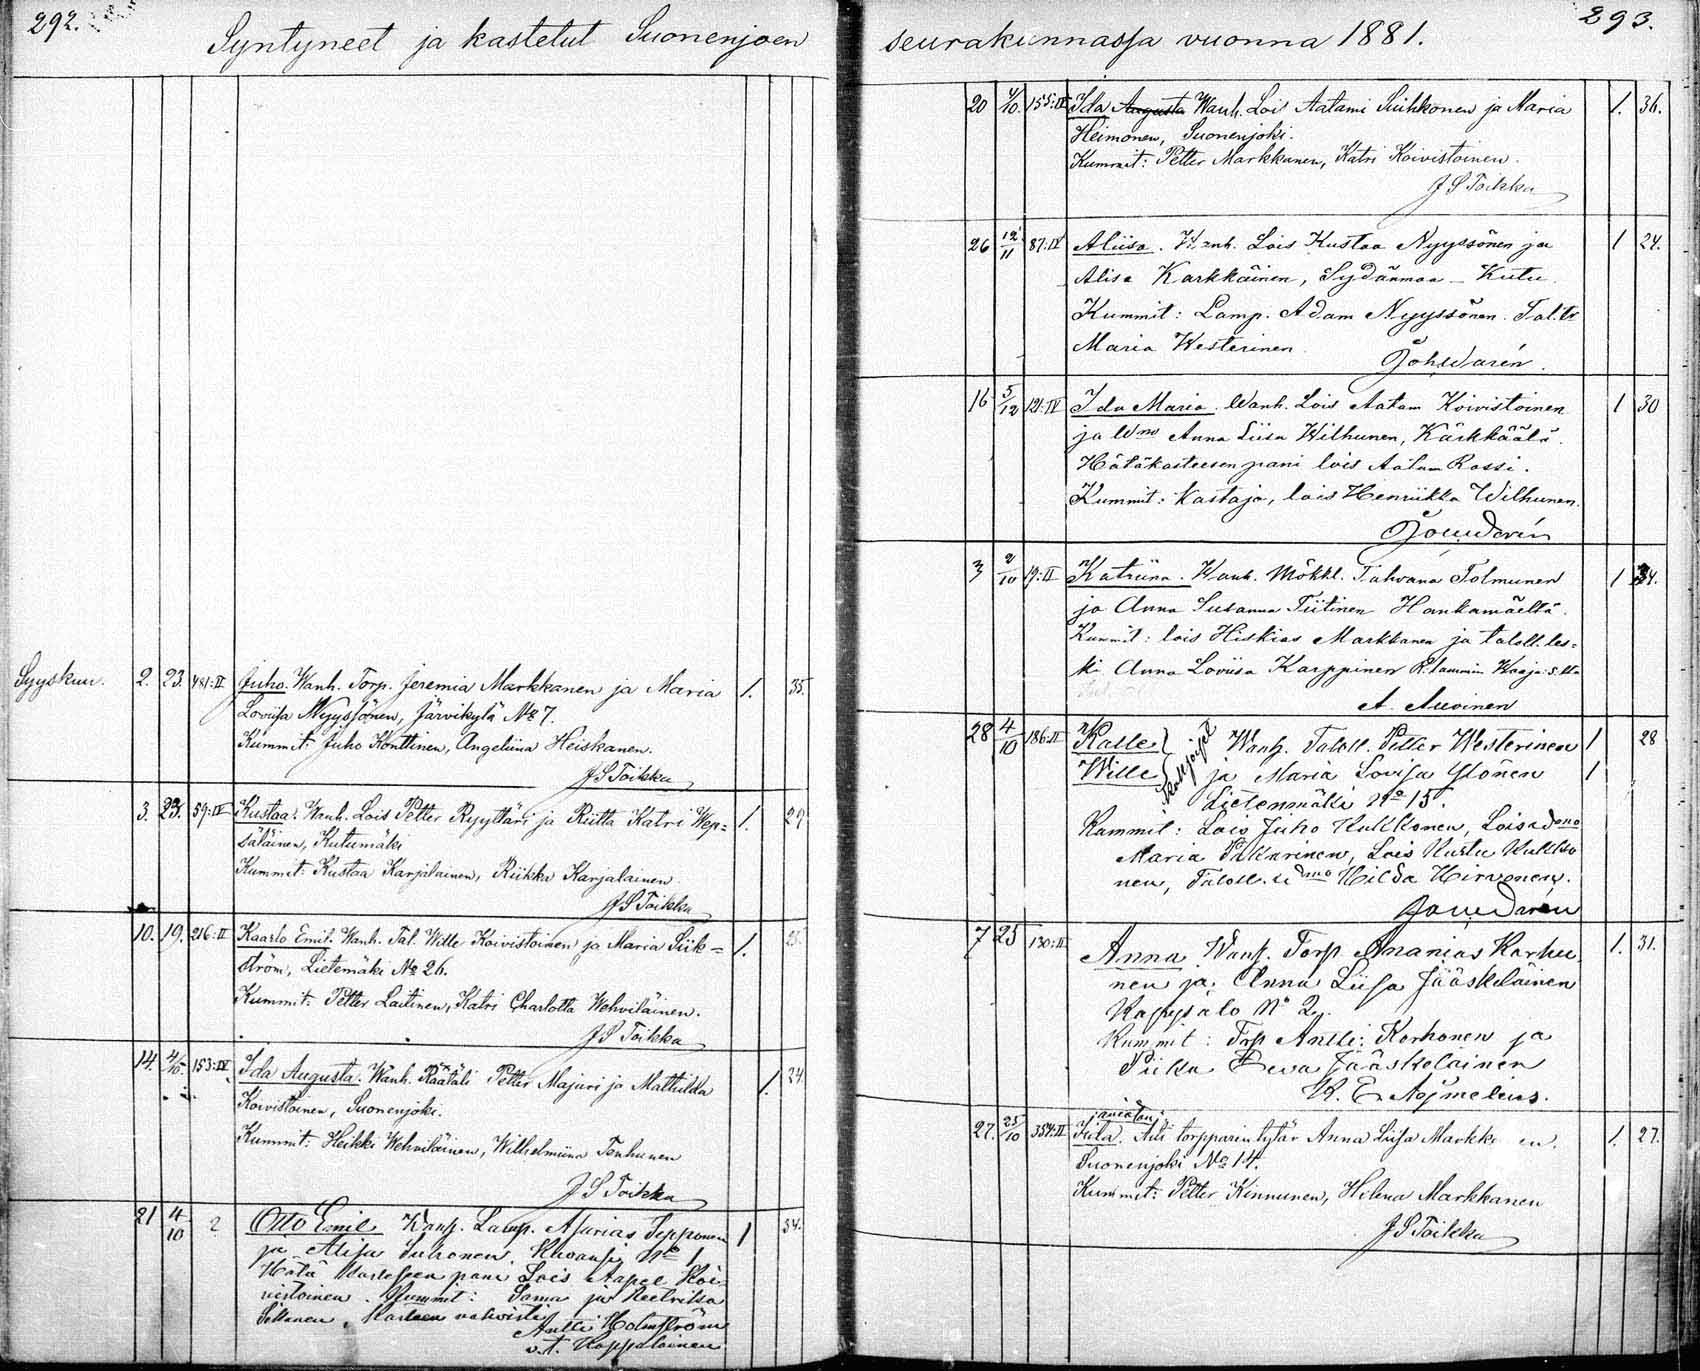 292.
Syntyneet ja kastetut Suonenjoen
Syyskuu. 2. 23. 481:II Juho. Wanh. Torp. Jeremia Markkanen ja Maria 1. 35.
Loviisa Nyyssönen, Järvikylä No 7.
Kummit: Juho Konttinen, Angeliina Heiskanen.
J S Toikka
3. 23. 59:IV Kustaa. Wanh. Lois Petter Ryyttäri ja Riitta Katri Wep= 1. 29
säläinen, Kutumäki
Kummit: Kustaa Karjalainen, Riikka Karjalainen
J S Toikka
10. 19. 216:II Kaarlo Emil. Wanh. Tal. Wille Koivistoinen ja Maria Siik= 1. 25.
ström, Lietemäki No 26.
Kummit: Petter Laitinen, Katri Charlotta Wehviläinen.
J S Toikka
14. 4/10 153:IV Ida Augusta. Wanh. Räätäli Petter Majuri ja Mathilda 1. 24.
Koivistoinen, Suonenjoki.
Kummit: Heikki Wehviläinen, Wilhelmiina Tenhunen
J S Toikka
21 4/10 2 Otto Emil Wanh. Lamp. Asarias Sepponen 1 34.
ja Alisa Suhonen, No 1
Hätä kasteseen pani Lois Aapel Koi
vistoinen. Kummit: Sama ja
Kasteen vahvisti
Antti Holmström
v.t. Kappalainen
293.
seurakunnassa vuonna 1881.
20 4/10. 155:IV Ida Augusta Wanh. Lois Aatami Suihkonen ja Maria 1. 36.
Heimonen, Suonenjoki.
Kummit: Petter Markkanen, Katri Koivistoinen.
J S Toikka
26 12/11 87:IV Aliisa. Wanh. Lois Kustaa Nyyssönen ja 1 24.
Alisa Karkkäinen, Sydänmaa - Kutu.
Kummit: Lamp. Adam Nyyssönen. Tal.tr
Maria Westerinen.
16 5/12 121:IV Ida Maria. Wanh. Lois Aatam Koivistoinen 1 30
ja Wmo Anna Liisa Wilhunen, Kärkkäälä.
Hätäkasteesen pani lois Aatam Rossi.
Kummit: Kastaja, lois Henriikka Wilhunen.
3 2/10 19:II Katriina. Wanh. Mökkl. Tahvana Tolmunen 1 34.
ja Anna Susanna Tiitinen Hankamäeltä.
Kummit: lois Hiskias Markkanen ja taloll. les=
ki Anna Loviisa Karppinen
A. Auvinen
28 4/10 186:II Kalle Wanh. Taloll. Petter Westerinen 1 28
Wille ja Maria Lovisa Ylönen 1
Lietenmäki No 15.
Kummit: Lois Juho Kukkonen, Lois
Maria Pitkarinen, Lois Kustu Kukko
nen, Taloll. Hilda Hirvonen.
7 25 130:II Anna Wanh. Torp Ananias Korho 1. 31.
nen ja Anna Liisa Jääskeläinen
No 2.
Kummit: Torp Antti Korhonen ja
Piika Eeva Jääskeläinen
27. 25/10 384:II Iida. Äiti torpparin tytär Anna Liisa Markkanen. 1. 27.
Suonenjoki No 14.
Kummit: Petter Kinnunen, Helena Markkanen
J S Toikka